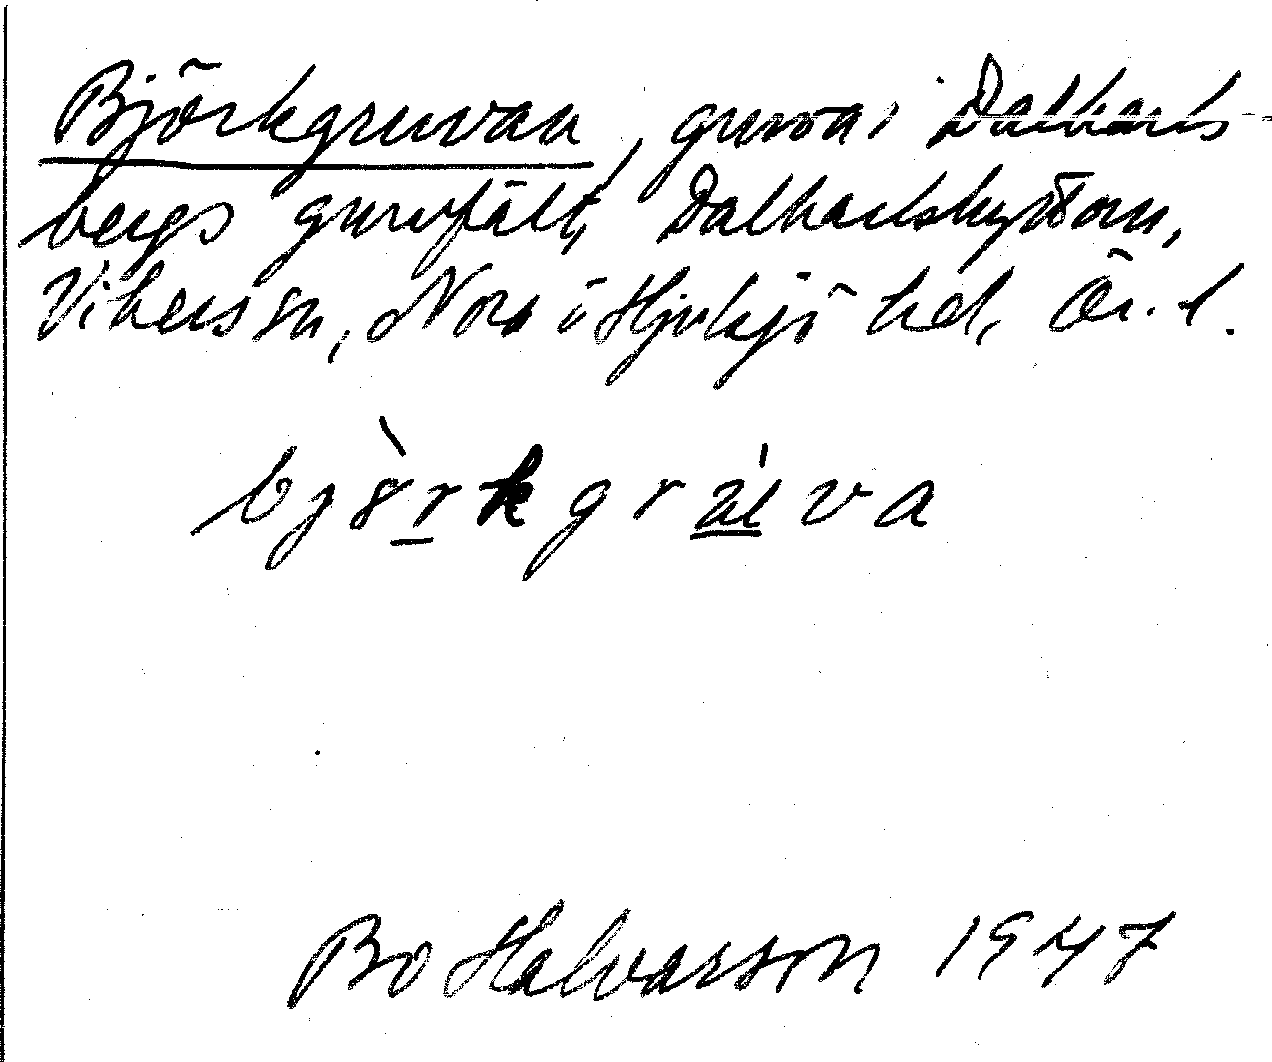 Björkgruvan, gruva i Dalkarls-
bergs gruvfält, Dalkarlshyttan,
Vikers sn, Nora o Hjulsjö hd, Ör. l.
bjòrkgrúva
Bo Halvarson 1947